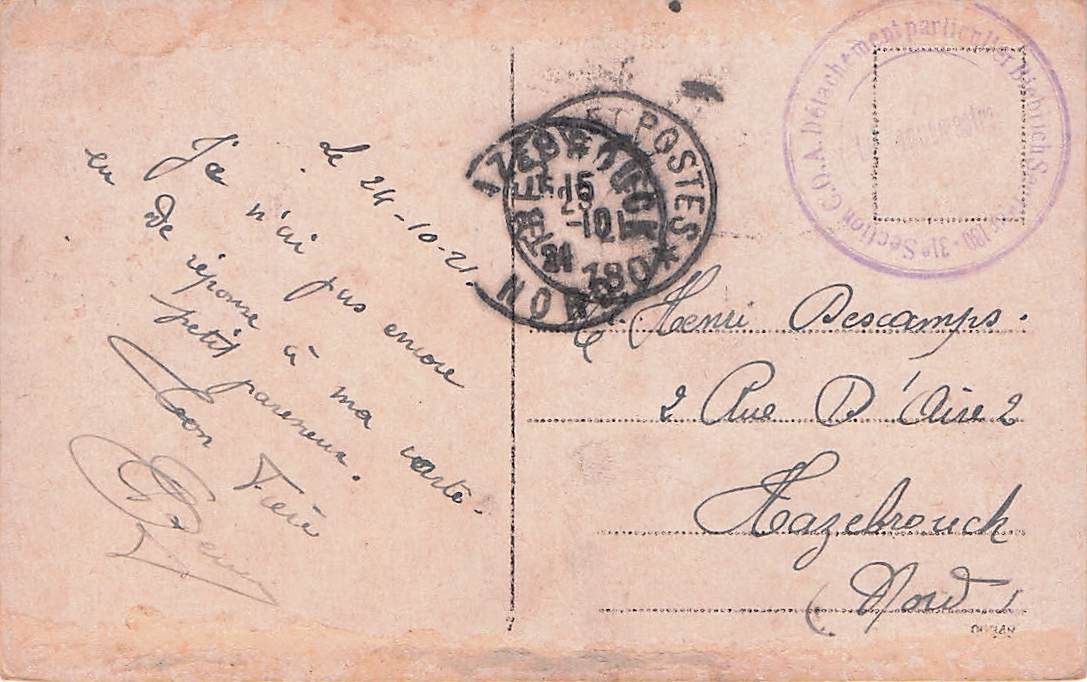 Le 24-10-21.
Je n'ai pas encore
eu de réponse à ma carte.
petit paresseux.
Ton Frère
ET POSTES
* 180 *
HAZEBROUCK
15
-10
21
NORD
Détachement particulier Biebrich S
31e Section C.O.A.
M. Henri Descamps.
2 Rue D'Aire 2
Hazebrouck
(Nord)